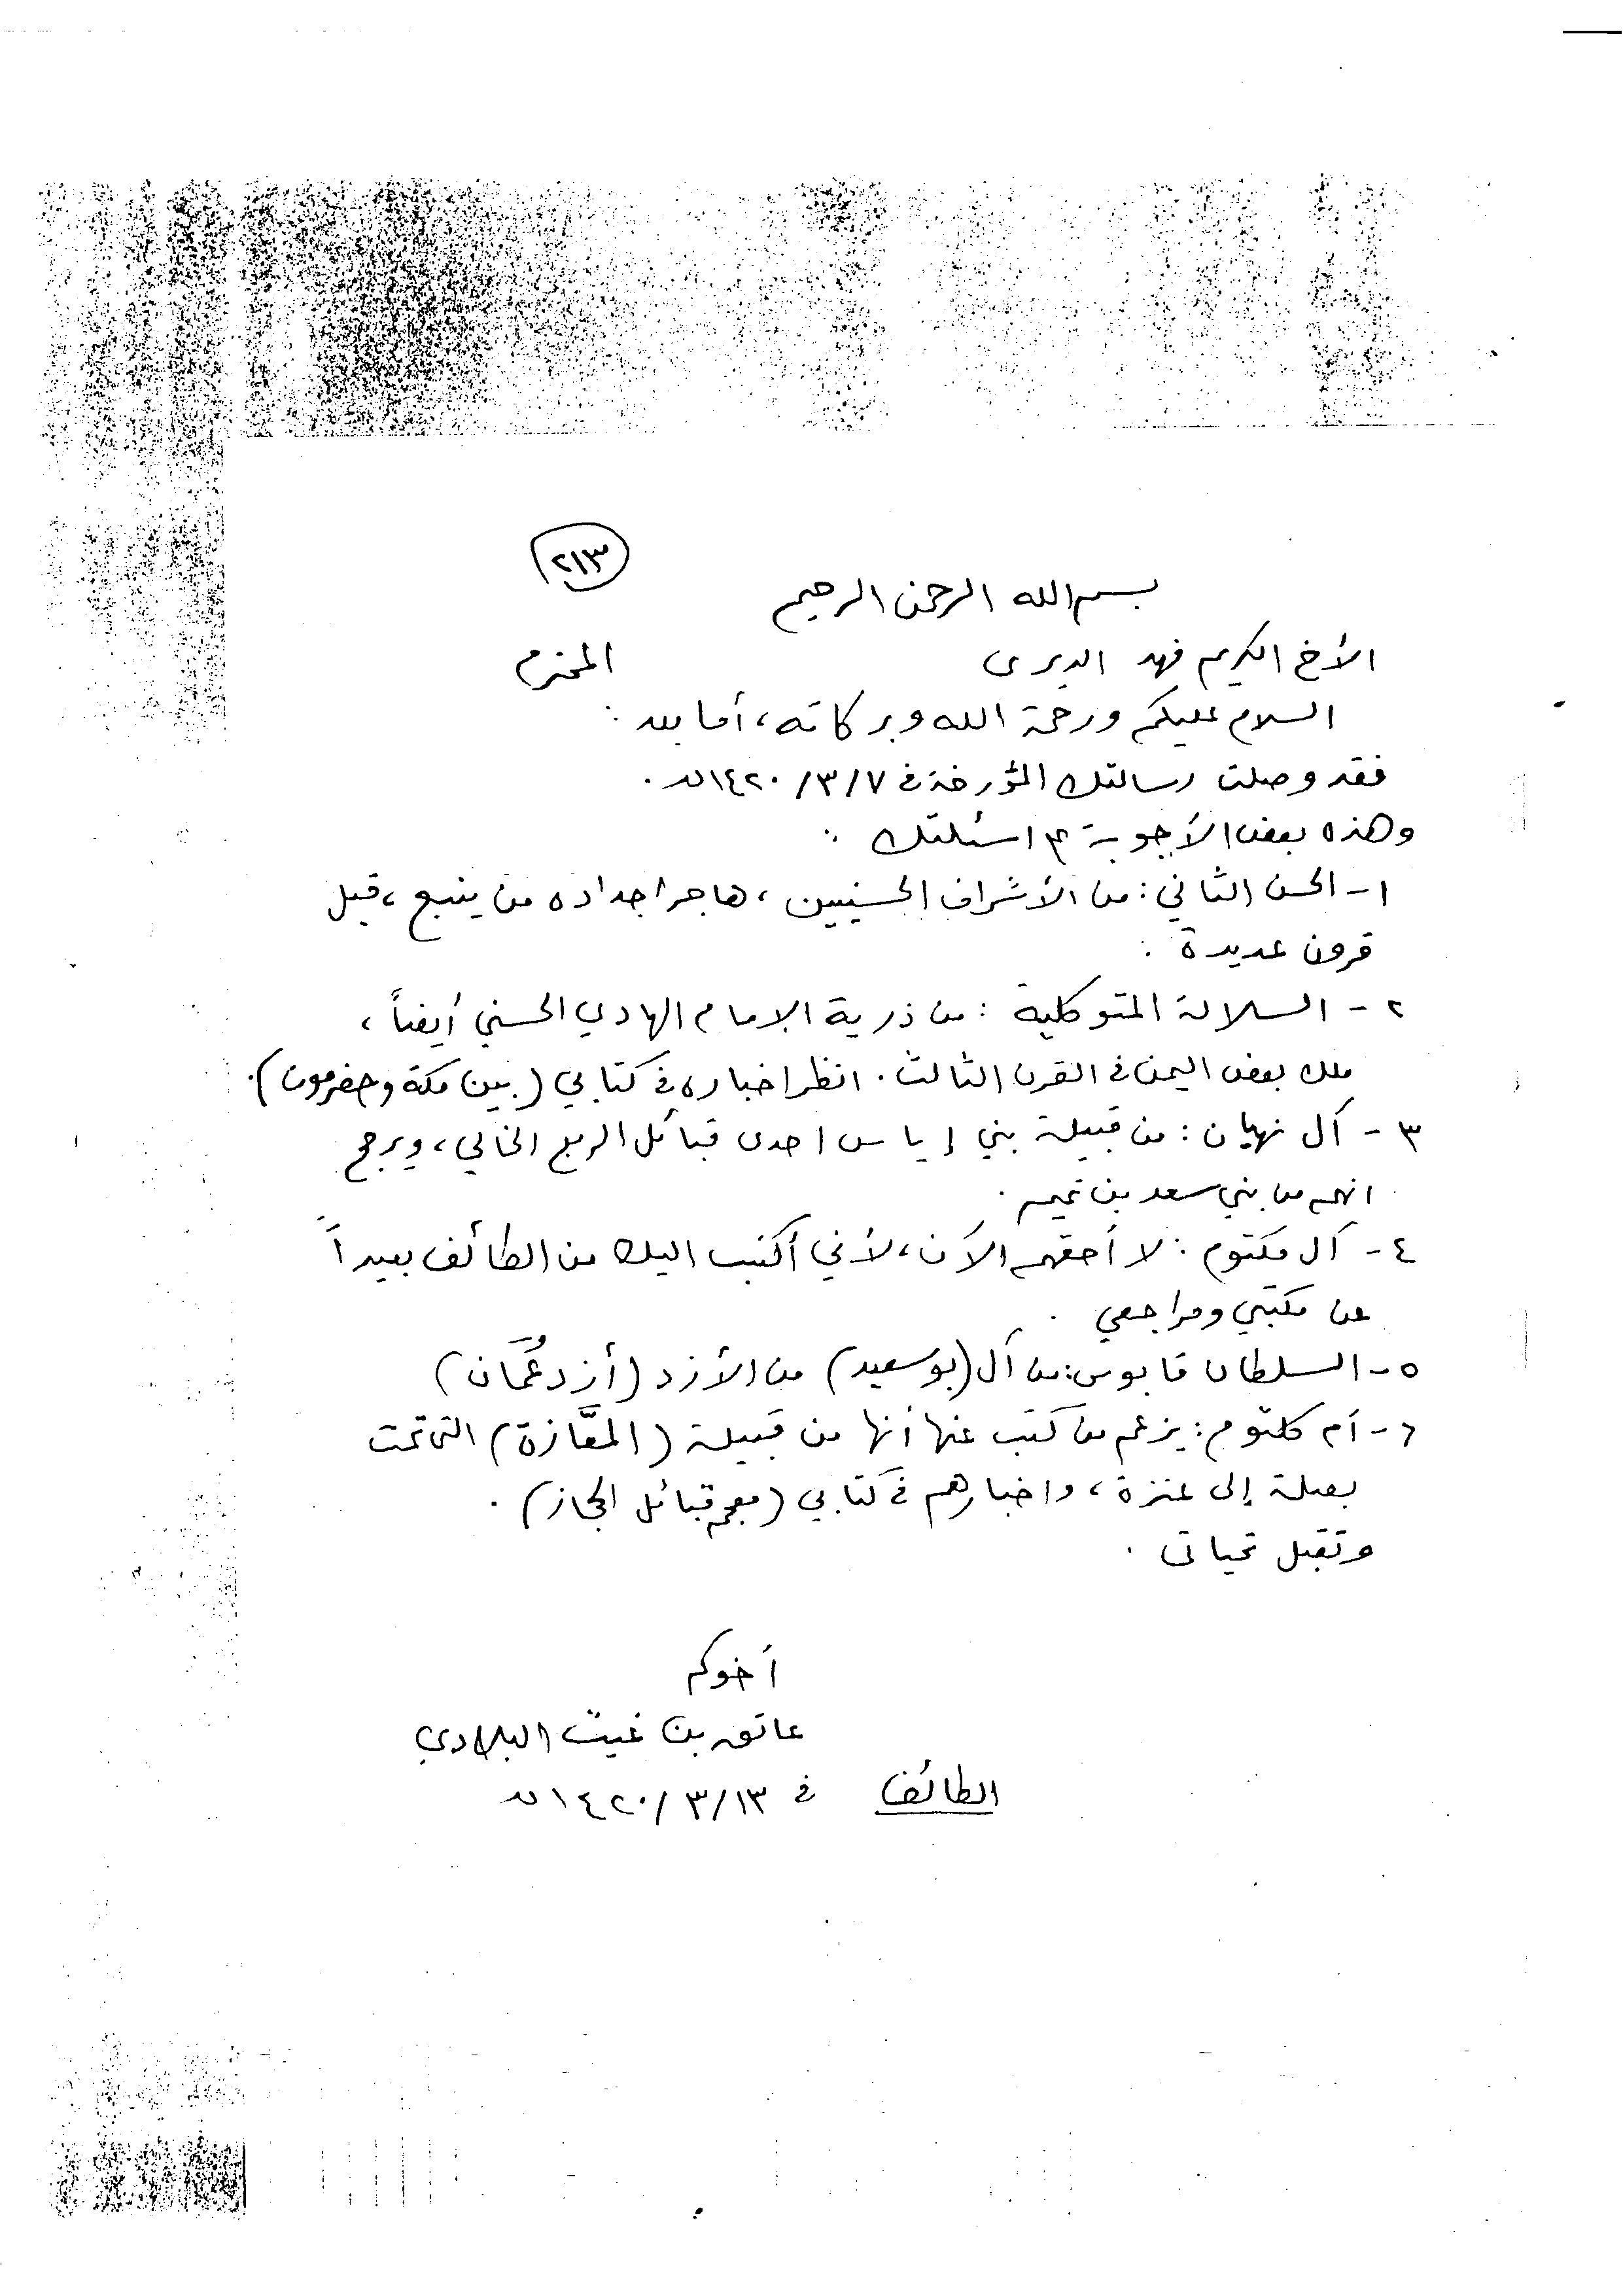 ٢١٣
بسم الله الرحمن الرحيم
الأخ الكريم فهد الديري المحترم
السلام عليكم ورحمة الله وبركاته، أما بعد :
فقد وصلت رسالتك المؤرخة في ١٤٢٠/٣/٧هـ .
وهذه بعض الأجوبة ع اسئلتك :
١- الحسن الثاني : من الأشراف الحسنيين ، هاجر اجداده من ينبع ، قبل
قرون عديدة .
٢- السلالة المتوكلية : من ذرية الإمام الهادي الحسني أيضاً ،
ملك بعض اليمن في القرن الثالث . انظر اخباره في كتابي (بين مكة وحضرموت) .
٣- آل نهيان : من قبيلة بني إياس احدى قبائل الربع الخالي ، ويرجح
انهم من بني سعد بن تميم .
٤- آل مكتوم : لا أحققهم الآن ، لأني أكتب اليك من الطائف بعيداً
عن مكتبتي ومراجعي .
٥- السلطان قابوس : من آل (بوسعيد) من الأزد (أزد عُمَان)
٦- أم كلثوم : يزعم من كتب عنها أنها من قبيلة (المعَّازة) التي تمت
بصلة إلى عنزة ، واخبارهم في كتابي (معجم قبائل الحجاز) .
وتقبل تحياتي .
أخوكم
عاتق بن غيث البلادي
الطائف في ١٤٢٠/٣/١٣هـ